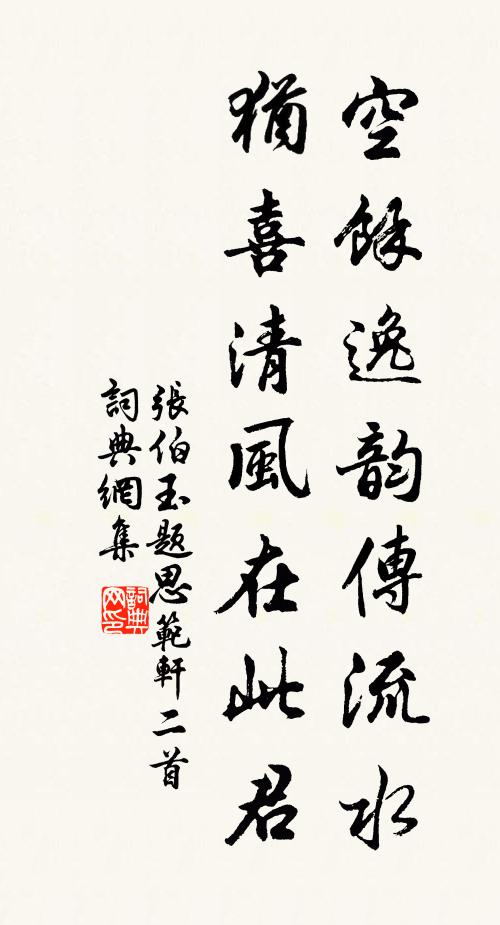 空餘逸韵傳流水
猶喜清風在此君
張伯玉題思範軒二首
詞典網集
詞典网印